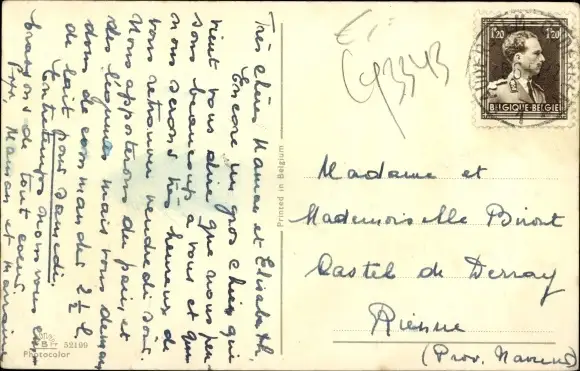 Très chères Maman et Elisabeth,
Encore un gros chien qui
vient vous dire que nous pen-
sons beaucoup à vous et que
nous serons très heureux de
vous retrouver vendredi soir.
Nous apporterons du pain et
des légumes mais vous deman-
dons de commander 2½ l.
de lait pour samedi.
Entretemps nous vous em-
brassons de tout coeur.
Maman et marraine
52199
Photocolor
Printed in Belgium
1F20 1F20
BELGIQUE-BELGIE
Madame et
Mademoiselle
Castel de
Rienne
(Prov. Namur)